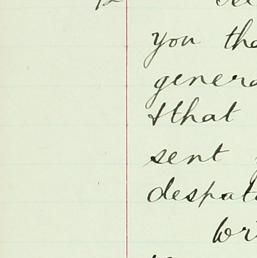 you the
genera
&that
sent
despat